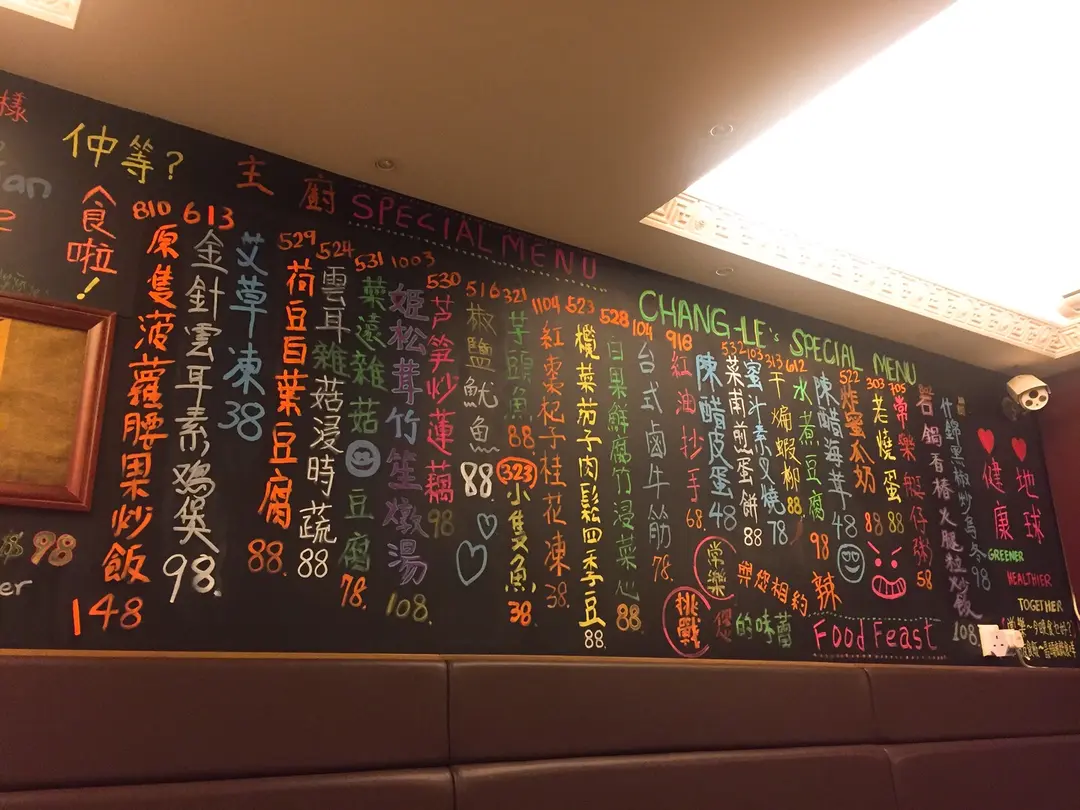 樣
仲等?
食啦!
98
主廚 SPECIAL MENU
810 原隻菠蘿腰果炒飯 148
613 金針雲耳素鷄煲 98.
艾草凍 38
529 荷豆百葉豆腐 88.
524 雲耳雜菇浸時蔬 88
531 菜遠雜菇豆腐 78.
1003 姬松茸竹笙燉湯 108.
530 芦笋炒蓮藕 98
516 椒鹽魷魚 88.
321 芋頭魚 88
323 小隻魚 38.
1104 紅棗杞子桂花凍 38.
523 欖菜茄子肉鬆四季豆 88.
528 白果鮮腐竹浸菜心 88
CHANG-LE's SPECIAL MENU
104 台式鹵牛筋 78.
918 紅油抄手 68.
陳醋皮蛋 48
532 菜甫煎蛋餅 88
103 蜜汁素叉燒 78
313 干煸蝦柳 88
612 水煮豆腐 98
陳醋海茸 48
522 炸蜜汁奶 88
303 老燒蛋 88
705 常樂艇仔粥 58
石鍋香椿火腿粒炒飯 108.
什錦黑椒炒烏冬 98
常樂
與您相約 辣
挑戰
您的味蕾
Food Feast
健康
地球
GREENER
HEALTHIER
TOGETHER